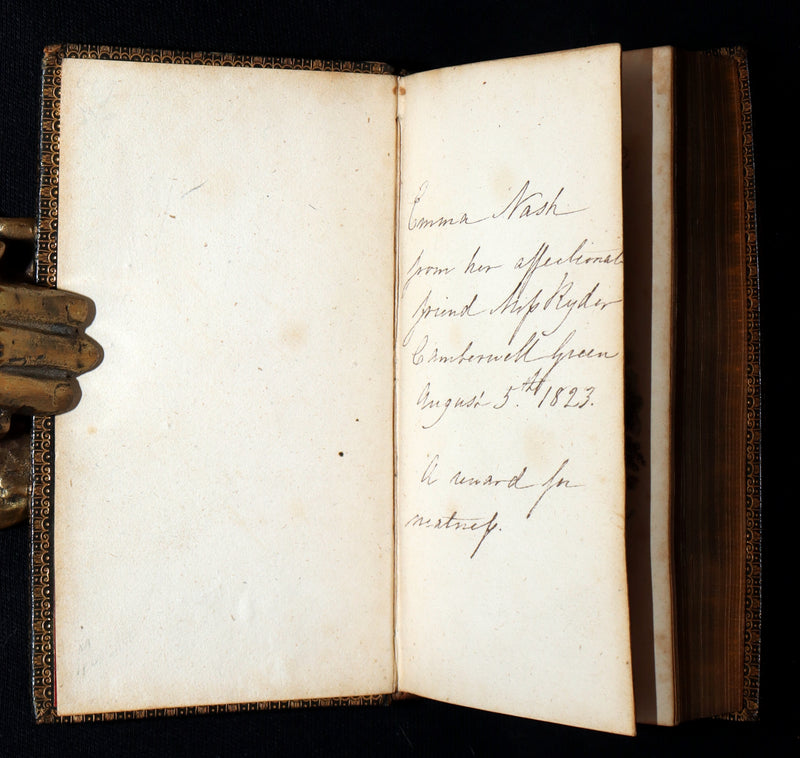 Emma Nash
from her affectionate
friend Miſs Ryder
Camberwell Green
August 5.th 1823.
A reward for
neatneſs.